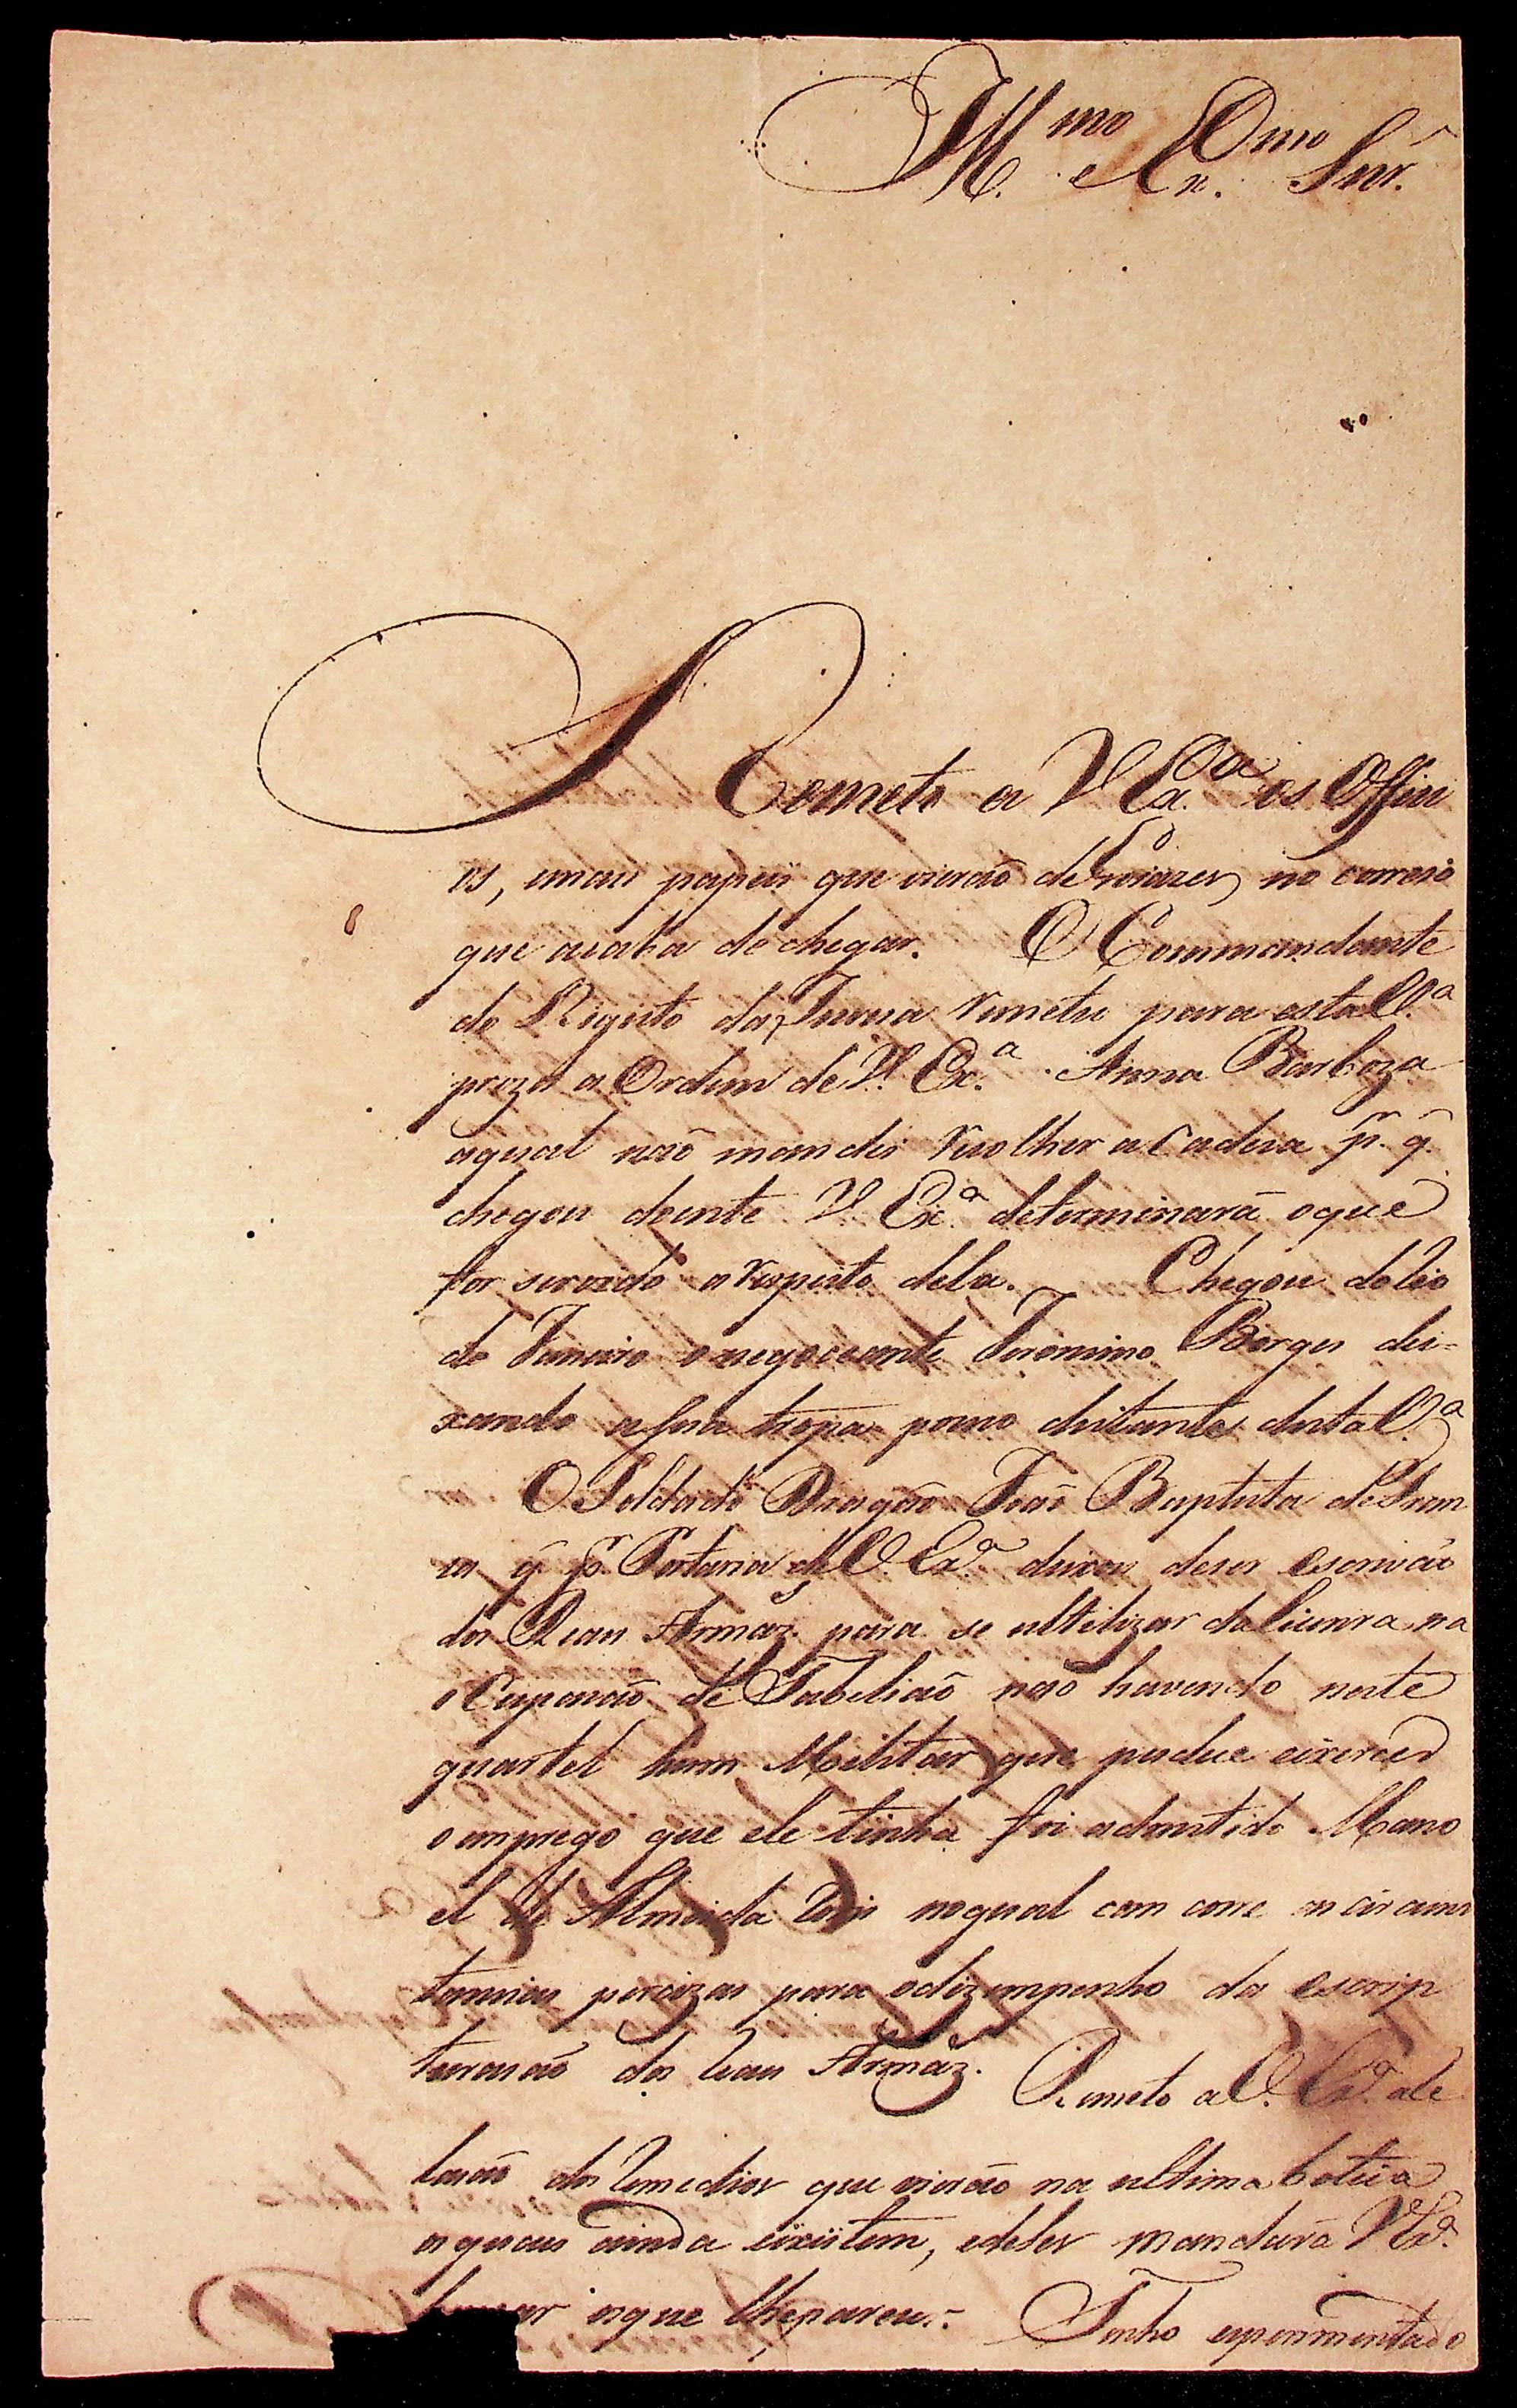 Ill.mo e Ex.mo Snr.
Remeto a V Ex.a os Offici
os, emais papeis que vierão de Goiazes no correio
que acaba de chegar. O Commandante
do Rigisto da Insua remeteu para esta V.a
preza a Ordem de V. Ex.a Anna Barboza
aqual não mandei recolher a cadeia p.r q.
chegou doente V. Ex.a determinará oque
for servido a respeito dela. Chegou do Rio
de Janeiro onegociante Jeronimo Borges dei=
xando asua tropa pouco distante desta V.a
O Soldado Dragão João Baptista de Sou
za q. p.r Portaria de V. Ex.a deixou deser escrivão
dos Reais Armaz. para se ultilizar da licença na
oCupação de Tabelião não havendo neste
quartel hum Militar que pudece eixercer
oemprego que ele tinha foi admitido Mano
el de Almeida Reis noqual com corre as circuns
tancias percizas para odizempenho da escrip
turação dos Reais Armaz. Remeto a V. Ex.a a Re
lação dos Remedios que vierão na ultima botica
os quais ainda eixistem, edeles mandará V Ex.a
buscar osque lheparecer. Tenho experimentado